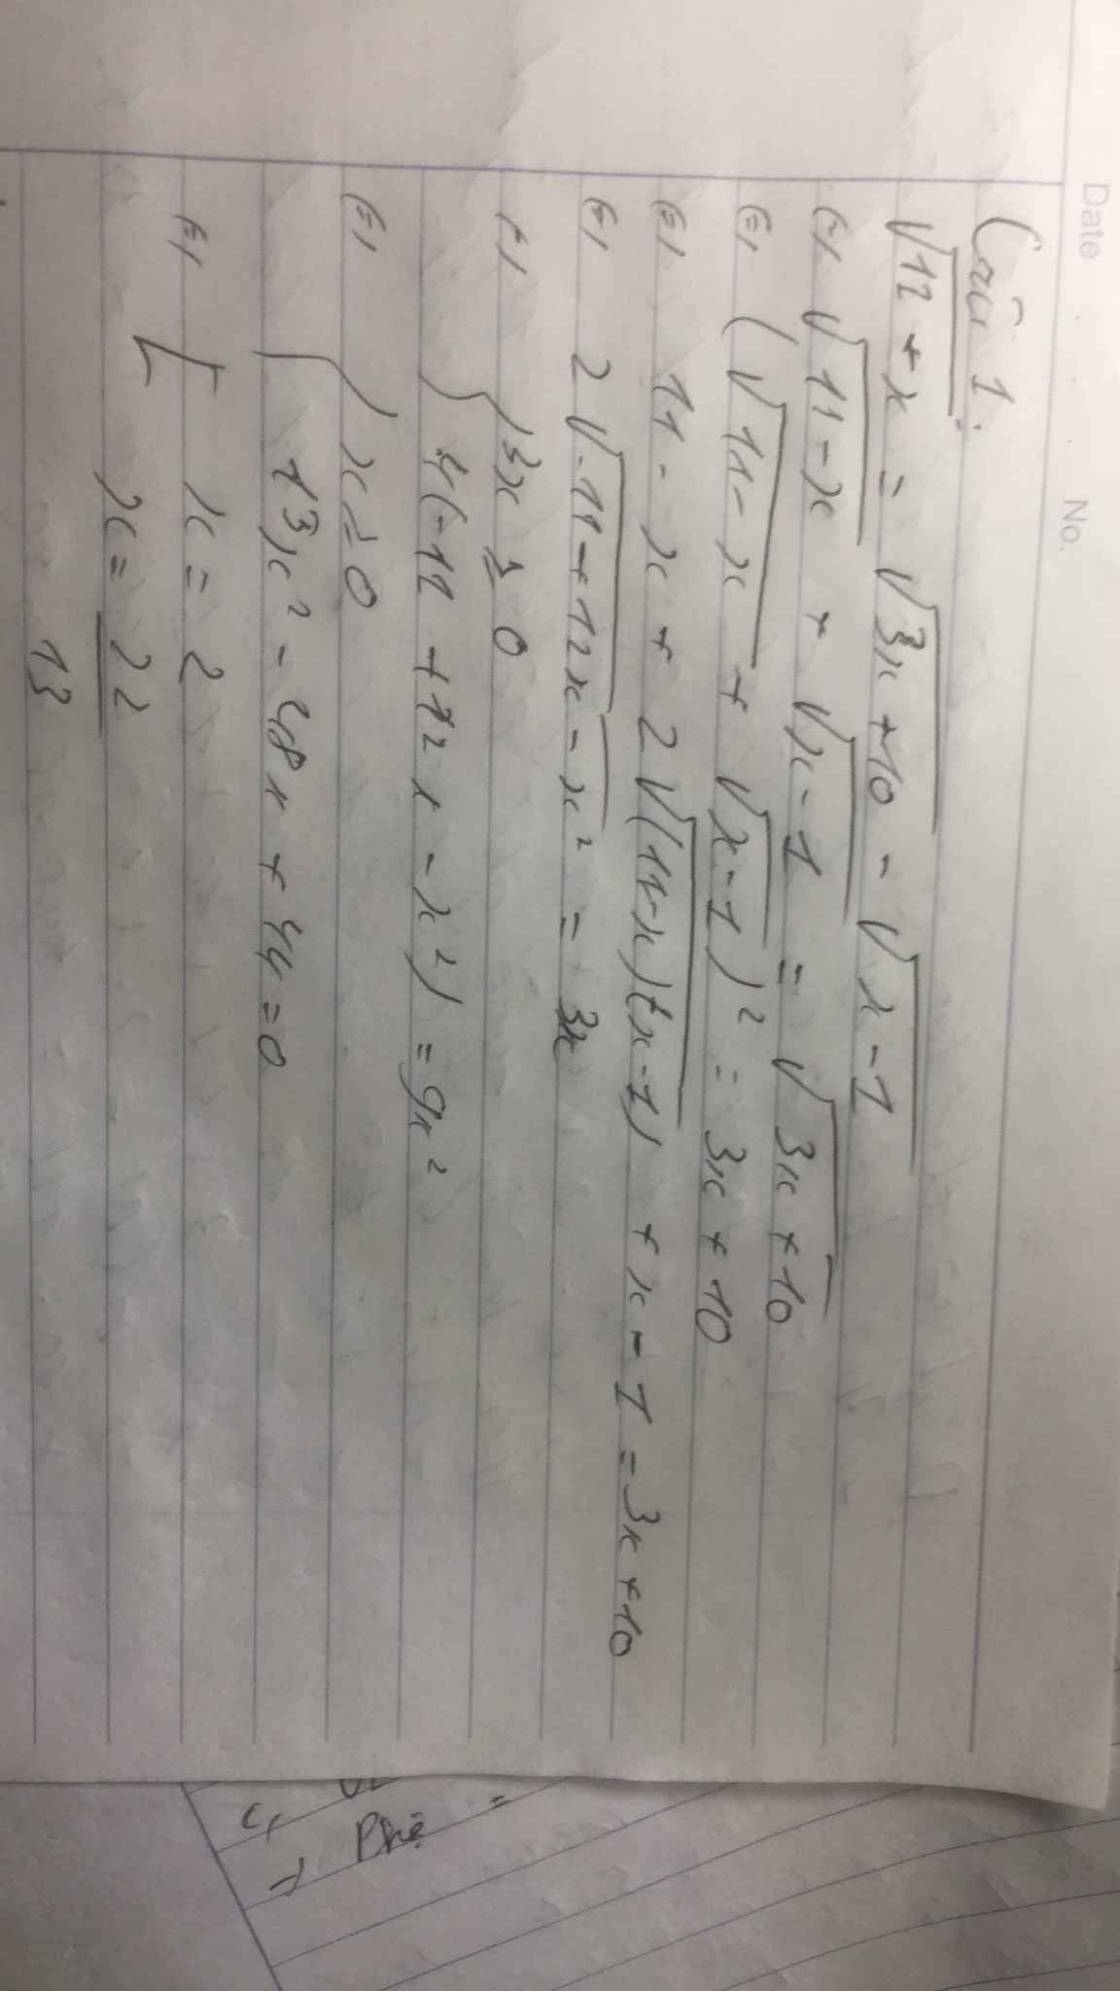 Date No.
Câu 1:
√11 + x = √3x + 10 - √x - 1
⇔ √11 - x + √x - 1 = √3x + 10
⇔ (√11 - x + √x - 1)² = 3x + 10
⇔ 11 - x + 2√(11-x)(x-1) + x - 1 = 3x + 10
⇔ 2√-11 + 12x - x² = 3x
⇔ { 3x ≥ 0
4(-11 + 12x - x²) = 9x²
⇔ { x ≥ 0
13x² - 48x + 44 = 0
⇔ [ x = 2
x = 22/13
Phê
=